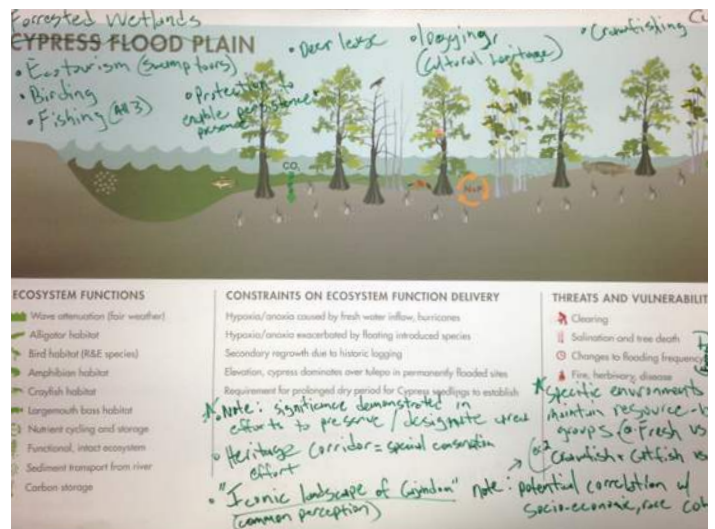 Forrested Wetlands
CYPRESS FLOOD PLAIN
• Ecotourism (swamp tours)
• Birding
• Fishing (All 3)
• Protection to
enable persistence
• Deer lease
• logging,
(cultural heritage)
• Crawfishing
CO₂
N+P
ECOSYSTEM FUNCTIONS
Wave attenuation (fair weather)
Alligator habitat
Bird habitat (R&E species)
Amphibian habitat
Crayfish habitat
Largemouth bass habitat
Nutrient cycling and storage
Functional, intact ecosystem
Sediment transport from river
Carbon storage
CONSTRAINTS ON ECOSYSTEM FUNCTION DELIVERY
Hypoxia/anoxia caused by fresh water inflow, hurricanes
Hypoxia/anoxia exacerbated by floating introduced species
Secondary regrowth due to historic logging
Elevation, cypress dominates over tulepo in permanently flooded sites
Requirement for prolonged dry period for Cypress seedlings to establish
• Note: significance demonstrated in
efforts to preserve / designate
• Heritage Corridor = special conservation
effort
• "Iconic landscape of
(common perception)
note: potential correlation w/
socio-economic, race
THREATS AND VULNERABILIT
Clearing
Salination and tree death
Changes to flooding frequency
Fire, herbivory, disease
specific environments
maintain resource-b
groups (Fresh vs
Crawfish + Catfish vs